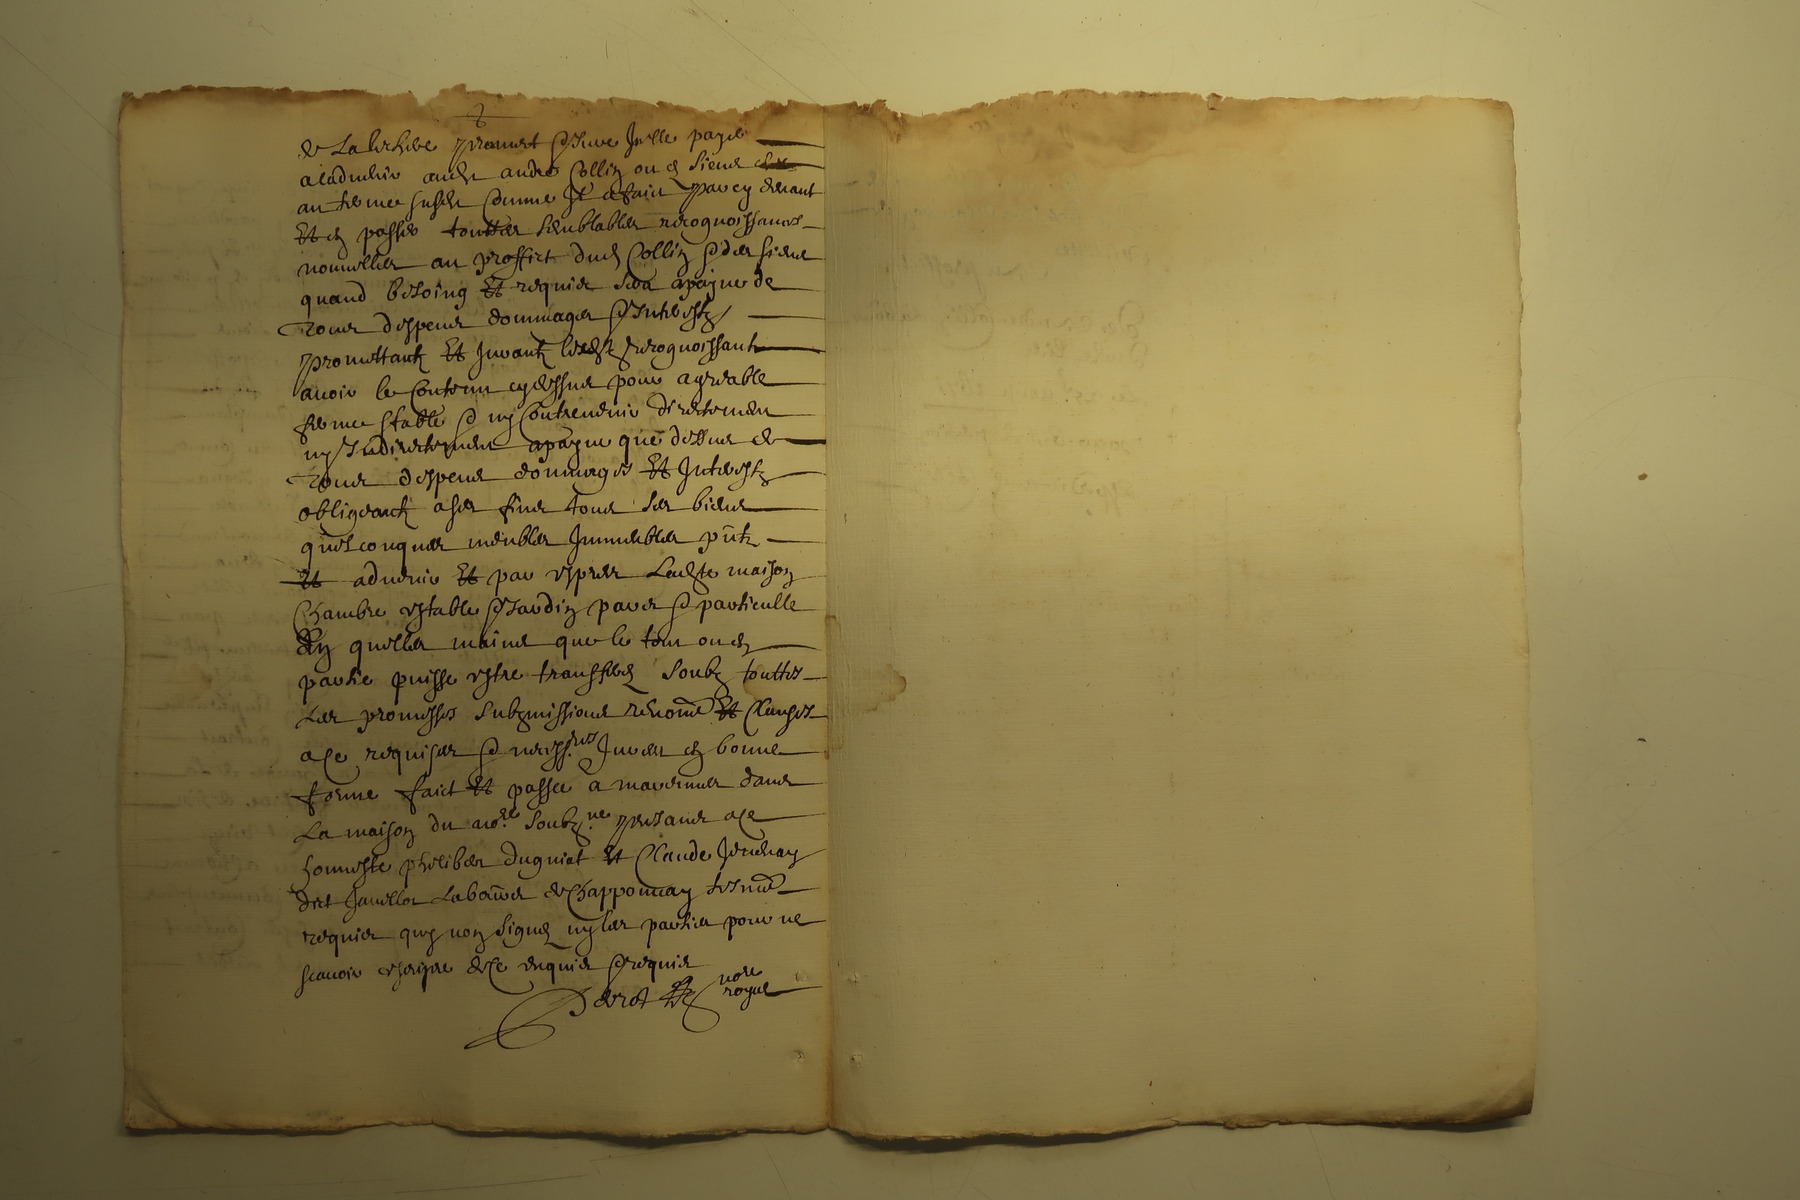 de La promet et Jcelle payer
a ladvenir aud andre Collin ou es siens
au terme susd comme Jl a faict par cy devant
Et en passer touttes semblables recognoissances
nouvelles au proffict dud Collin et des siens
quand besoing Et requis sera a payne de
tous despens dommages et Interestz
promettantz Et Jurantz lesd recognoissantz
avoir le Contenu cydessus pour agreable
ferme stable et ny Contrevenir directement
ny Indirectement a payne que dessus de
tous despens dommages Et Interestz
obligeantz a ses fins tous ses biens
quelconques meubles Immeubles pntz
Et advenir Et par expres Ladte maison
Chambre estable et Jardin pars et particulle
En quelles mains que le tout ou en
partie puisse estre transferes soubz touttes
Les promesses submissions renome Et Clauses
a ce requises et necessres Jnseres en bonne
forme faict Et passee a dans
La maison du nore soubzne presans a ce
honneste philiber duguiat Et Claude
dict Laboureur de Chapponnay tesmo
requis quy nont signes ny les parties pour ne
scavoir escripre de ce enquis et requis
nore
royal